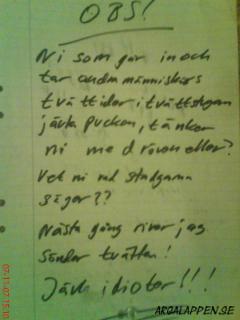 OBS!
Ni som går in och
tar andra människors
tvättider i tvättstugan
jävla puckon, tänker
ni med röven eller?
Vet ni vad stadgarna
säger??
Nästa gång river jag
sönder tvätten!
Jävla idioter!!!
ARGALAPPEN.SE